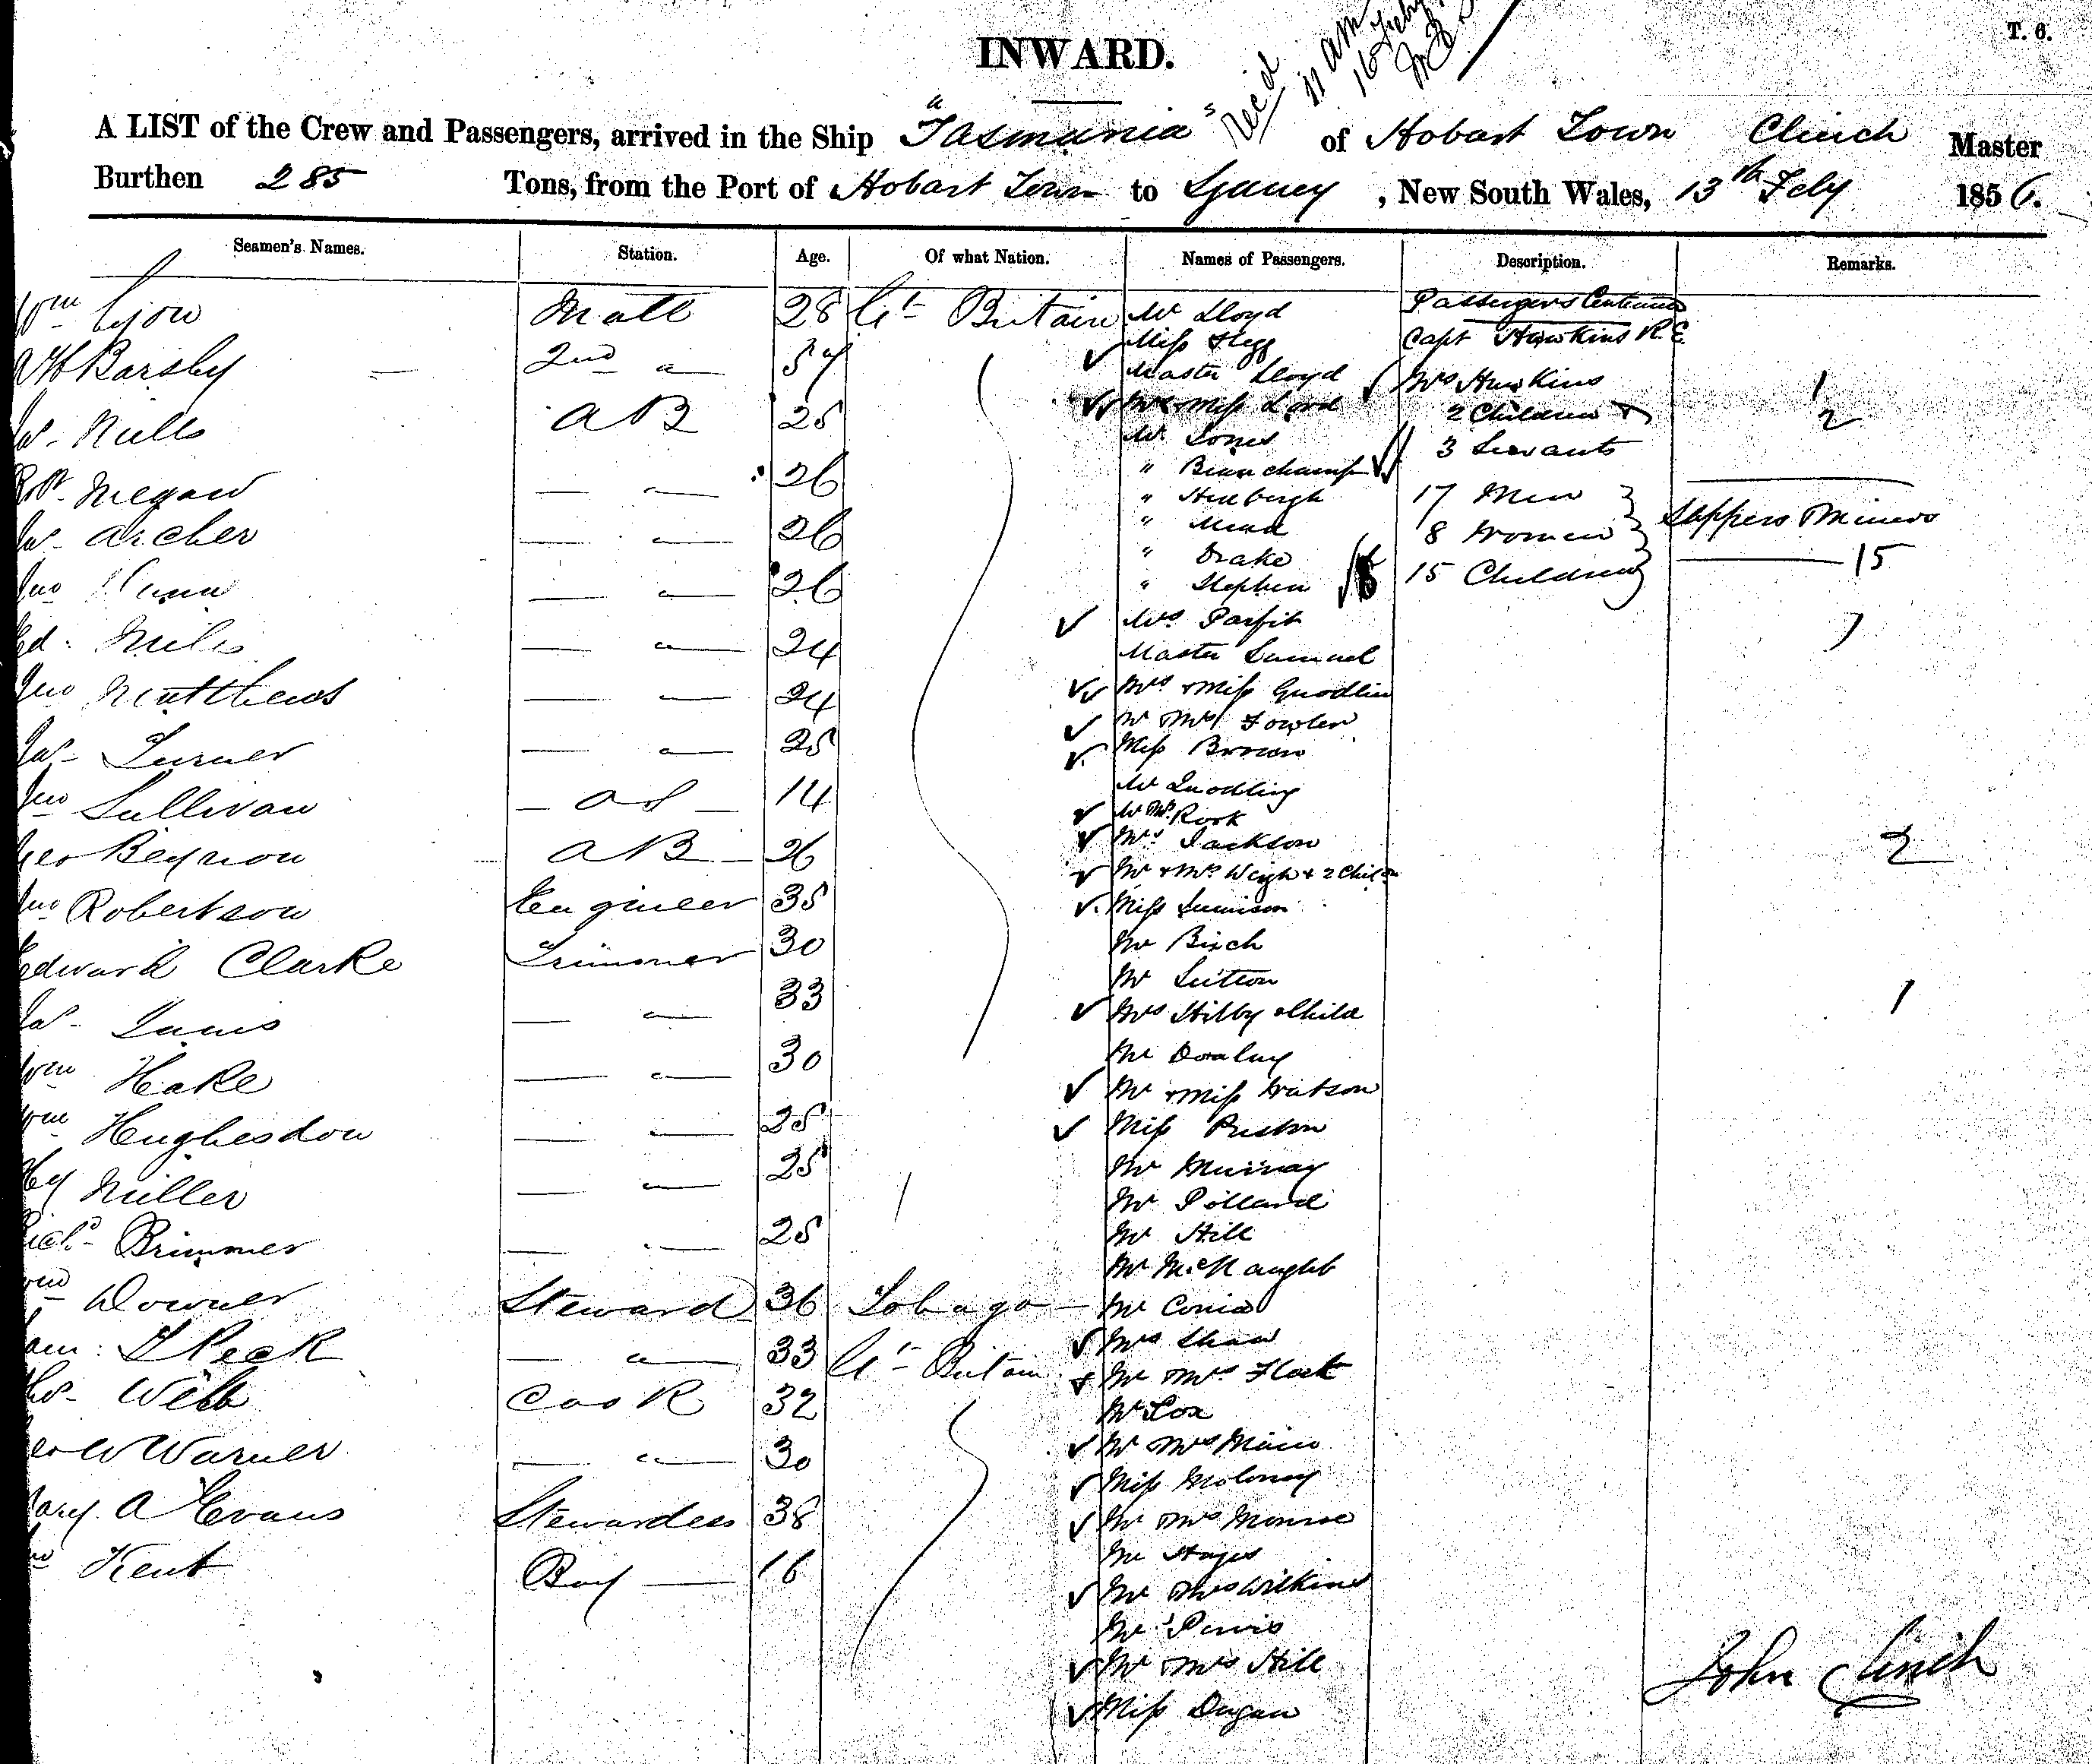 T. 6.
INWARD.
Rec'd 11 am 16 Feby
A LIST of the Crew and Passengers, arrived in the Ship "Tasmania" of Hobart Town Clinch Master
Burthen 285 Tons, from the Port of Hobart Town to Sydney, New South Wales, 13th Feby 1856.
Seamen's Names. Station. Age. Of what Nation. Names of Passengers. Description. Remarks.
Wm Lyon Mate 28 Gt Britain
Barsby 2nd " 37
Mills AB 25
Rt Megaw — " — 26
Js Archer — " — 26
Jno — " — 26
Ed: Miles — " — 24
Jno Matthews — " — 24
Jas Turner — " — 25
Jno Sullivan — OS — 14
Geo Beynon AB — 26
Jno Robertson Engineer 35
Edward Clarke Trimmer 30
Jas — " — 33
Wm Hake — " — 30
Wm Hughesdon — " — 25
Hy Miller — " — 25
Richd Brimmer — " — 25
Wm Downer Steward 36 Tobago
Sam: Peek — " — 33 Gt Britain
Webb Cook 32
Geo W Warner — " — 30
Mary A Evans Stewardess 38
Kent Boy — 16
Mr Lloyd
Miss Stegg
Master Lloyd
Miss Lord
Mr Jones
" Beauchamp
"
" Mead
" Drake
" Stephen
Mrs Parfit
Master Samuel
Mrs & Miss
Mr & Mrs Fowler
Miss Brown
Mr Quodling
Mr & Mrs Rook
Mrs Jackson
Mr & Mrs Weigh & 2 Child
Miss
Mr Birch
Mr Sutton
Mrs Hilby & Child
Mr
Mr & Miss Watson
Miss Preston
Mr Murray
Mr Pollard
Mr Hill
Mr McNaught
Mr
Mrs Shaw
Mr & Mrs
Mr Cox
Mr & Mrs Main
Miss Moloney
Mr & Mrs Monroe
Mr Hayes
Mr & Mrs Wilkins
Mr
Mr & Mrs Hill
Miss Dugan
Passengers Continued
Capt Hawkins R.E.
Mrs Hawkins 1
2 Children & 2
3 Servants
17 Men
8 Women Sappers & Miners
15 Children 15
7
2
1
John Clinch